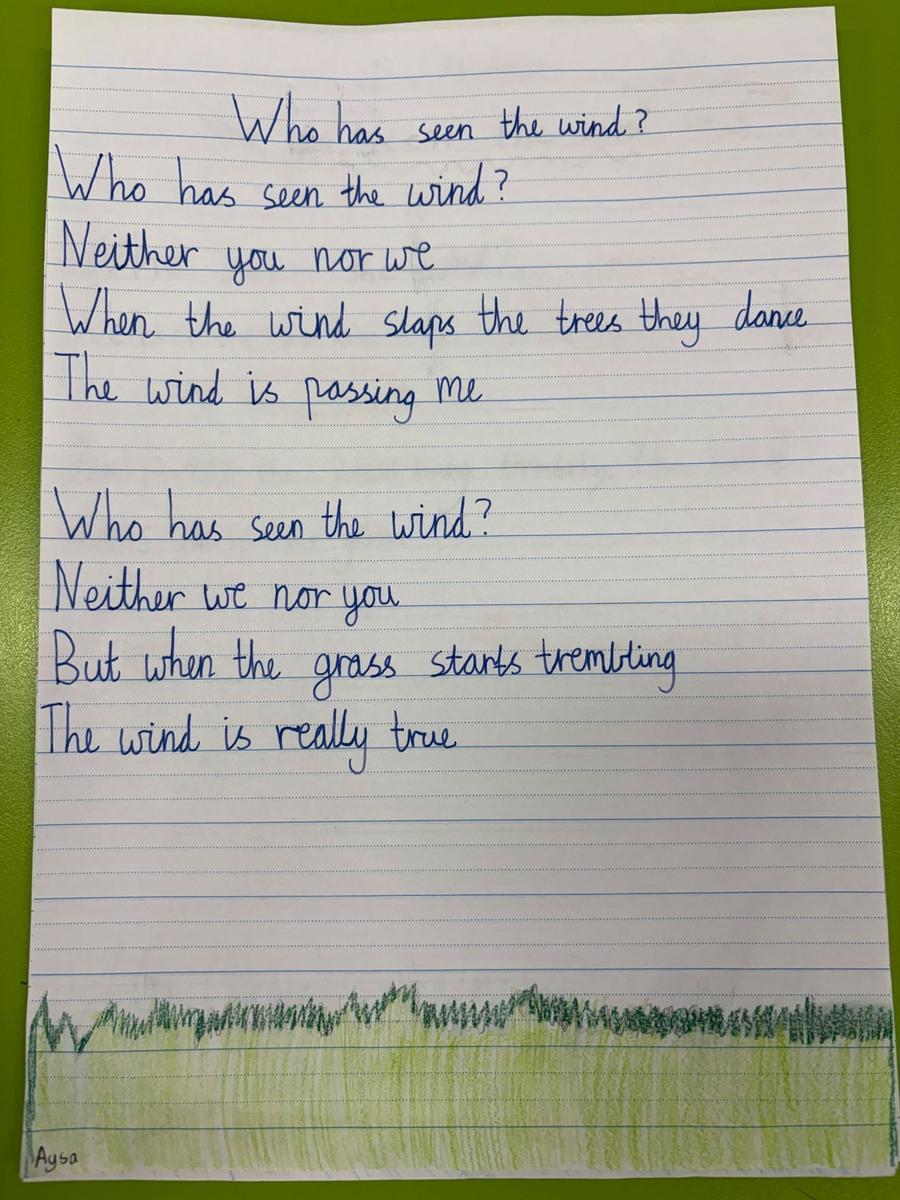 Who has seen the wind?
Who has seen the wind?
Neither you nor we
When the wind slaps the trees they dance
The wind is passing me
Who has seen the wind?
Neither we nor you
But when the grass starts trembling
The wind is really true
Aysa